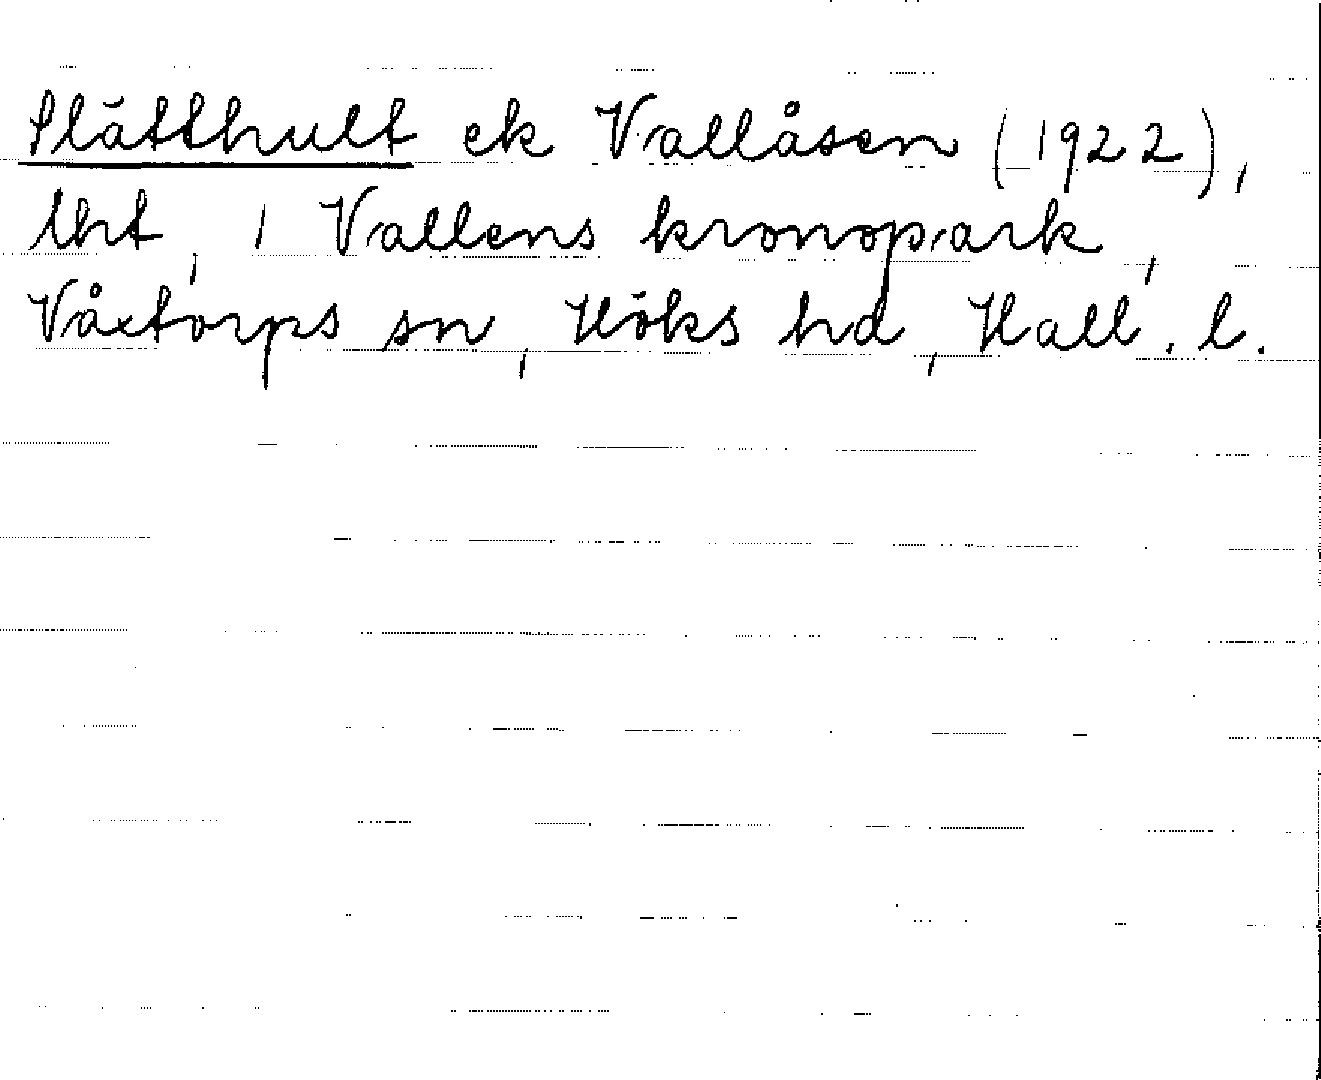 Slätthult ek Vallåsen (1922),
lht, i Vallens kronopark,
Våxtorps sn, Höks hd, Hall. l.